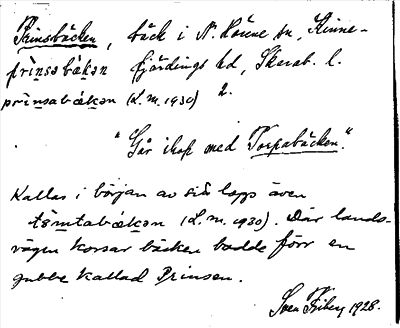 Prinsbäcken, bäck i N. Härene sn, Kinne-
prinsabäkən fjärdings hd, Skarab. l.
prinsabäkən (L.m. 1930) 2.
"Går ihop med Torpabäcken."
Kallas i början av sitt lopp även
tämtabäkən (L.m. 1930). Där lands-
vägen korsar bäcken bodde förr en
gubbe kallad Prinsen.
Sven Friberg 1928.